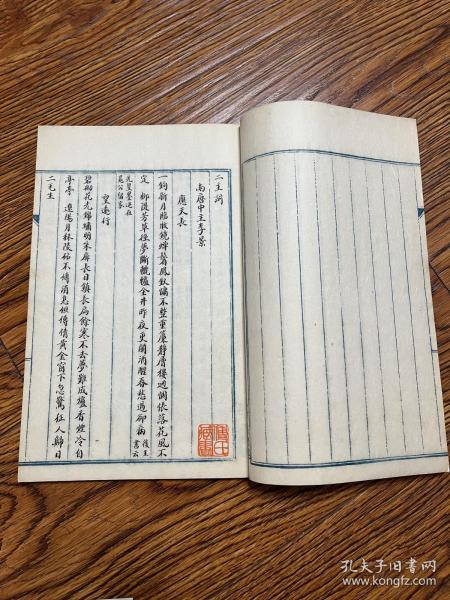 二主詞
南唐中主李景
應天長
一鉤新月臨妝鏡蟬鬢鳳釵慵不整重簾靜層樓迥惆悵落花風不
定 柳隄芳草徑夢斷轆轤金井昨夜更闌酒醒春愁過卻病 後主書云
先皇墨迹在
晁公留家
望遠行
碧砌花光錦繡明朱扉長日鎮長扃餘寒不去夢難成爐香煙冷自
亭亭 遼陽月秣陵砧不傳消息但傳情黃金窗下忽驚征人歸日
二毛生
孔夫子旧书网
www.kongfz.com